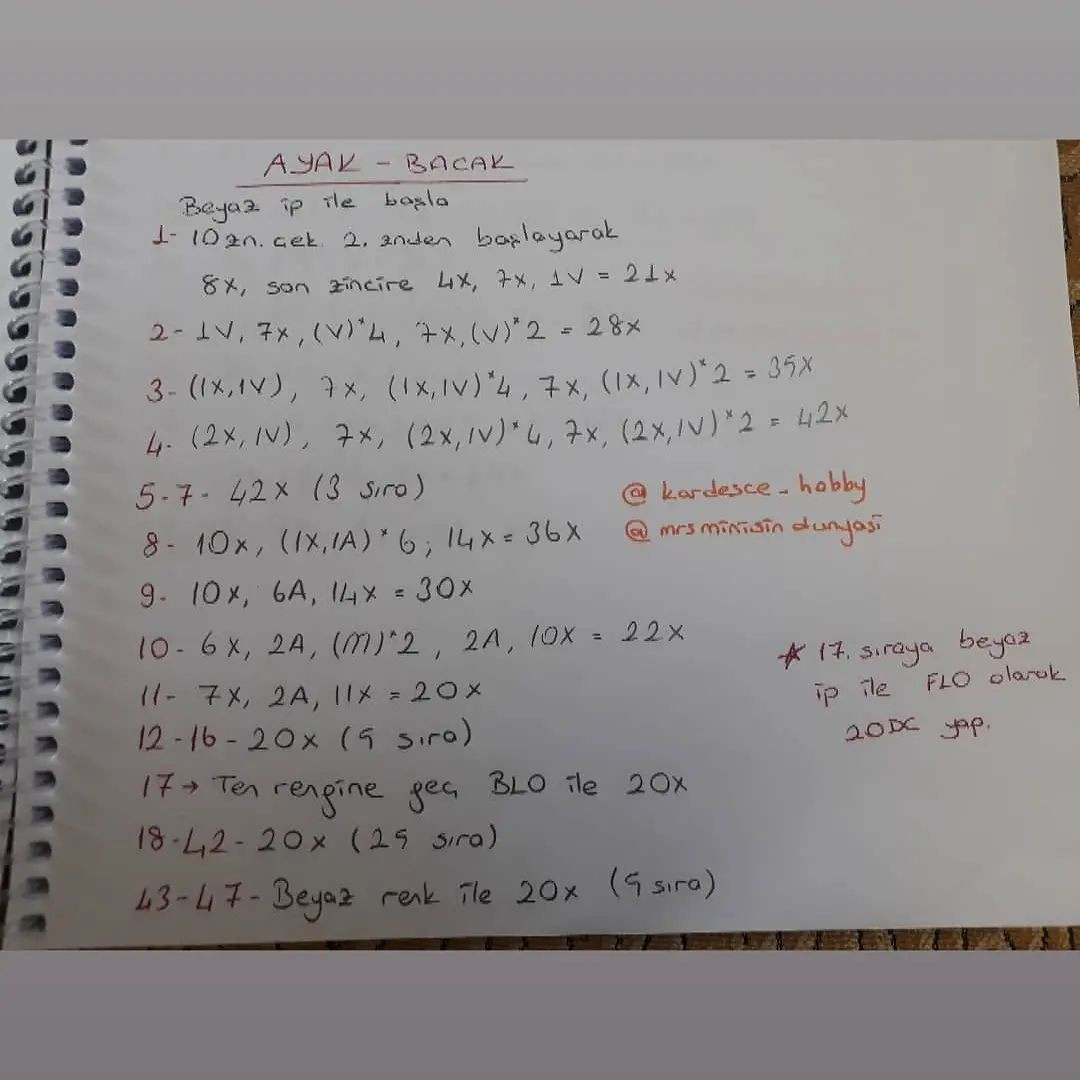 AYAK - BACAK
Beyaz ip ile başla
1- 10 zn. çek. 2. znden başlayarak
8x, son zincire 4x, 7x, 1V = 21x
2- 1V, 7x, (V)*4, 7x, (V)*2 = 28x
3- (1x, 1V), 7x, (1x, 1V)*4, 7x, (1x, 1V)*2 = 35x
4- (2x, 1V), 7x, (2x, 1V)*4, 7x, (2x, 1V)*2 = 42x
5-7- 42x (3 sıra)
@kardesce_hobby
8- 10x, (1x, 1A)*6, 14x = 36x
@mrsminisindunyasi
9- 10x, 6A, 14x = 30x
10- 6x, 2A, (M)*2, 2A, 10x = 22x
11- 7x, 2A, 11x = 20x
12-16- 20x (5 sıra)
17 → Ten rengine geç BLO ile 20x
18-42- 20x (25 sıra)
43-47- Beyaz renk ile 20x (5 sıra)
* 17. sıraya beyaz
ip ile FLO olarak
20DC yap.